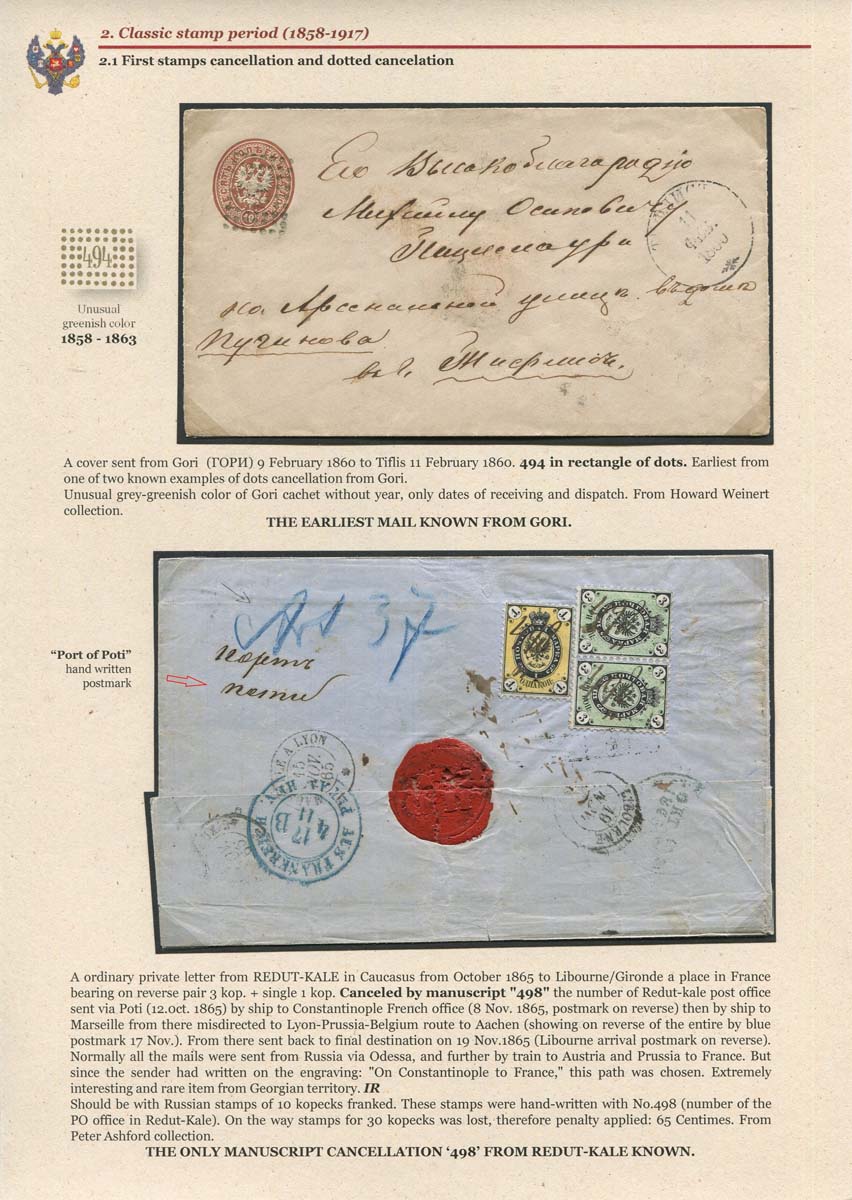 2. Classic stamp period (1858-1917)
2.1 First stamps cancellation and dotted cancelation
10
Его Высокоблагородію
Михаилу Осиповичу
11
ФЕВ.
1860
494
Unusual
greenish color
1858 - 1863
на Арсенальной улицѣ въ домѣ
Пучинова
въ г. Тифлисъ.
A cover sent from Gori (ГОРИ) 9 February 1860 to Tiflis 11 February 1860. 494 in rectangle of dots. Earliest from
one of two known examples of dots cancellation from Gori.
Unusual grey-greenish color of Gori cachet without year, only dates of receiving and dispatch. From Howard Weinert
collection.
THE EARLIEST MAIL KNOWN FROM GORI.
37
1 1
1 1
3 3
3 3
"Port of Poti"
hand written
postmark
Портъ
Поти
A LYON
15
NOV
65
AUS FRANKREICH
17 B
4 11
LIBOURNE
19
A ordinary private letter from REDUT-KALE in Caucasus from October 1865 to Libourne/Gironde a place in France
bearing on reverse pair 3 kop. + single 1 kop. Canceled by manuscript "498" the number of Redut-kale post office
sent via Poti (12.oct. 1865) by ship to Constantinople French office (8 Nov. 1865, postmark on reverse) then by ship to
Marseille from there misdirected to Lyon-Prussia-Belgium route to Aachen (showing on reverse of the entire by blue
postmark 17 Nov.). From there sent back to final destination on 19 Nov.1865 (Libourne arrival postmark on reverse).
Normally all the mails were sent from Russia via Odessa, and further by train to Austria and Prussia to France. But
since the sender had written on the engraving: "On Constantinople to France," this path was chosen. Extremely
interesting and rare item from Georgian territory. IR
Should be with Russian stamps of 10 kopecks franked. These stamps were hand-written with No.498 (number of the
PO office in Redut-Kale). On the way stamps for 30 kopecks was lost, therefore penalty applied: 65 Centimes. From
Peter Ashford collection.
THE ONLY MANUSCRIPT CANCELLATION '498' FROM REDUT-KALE KNOWN.